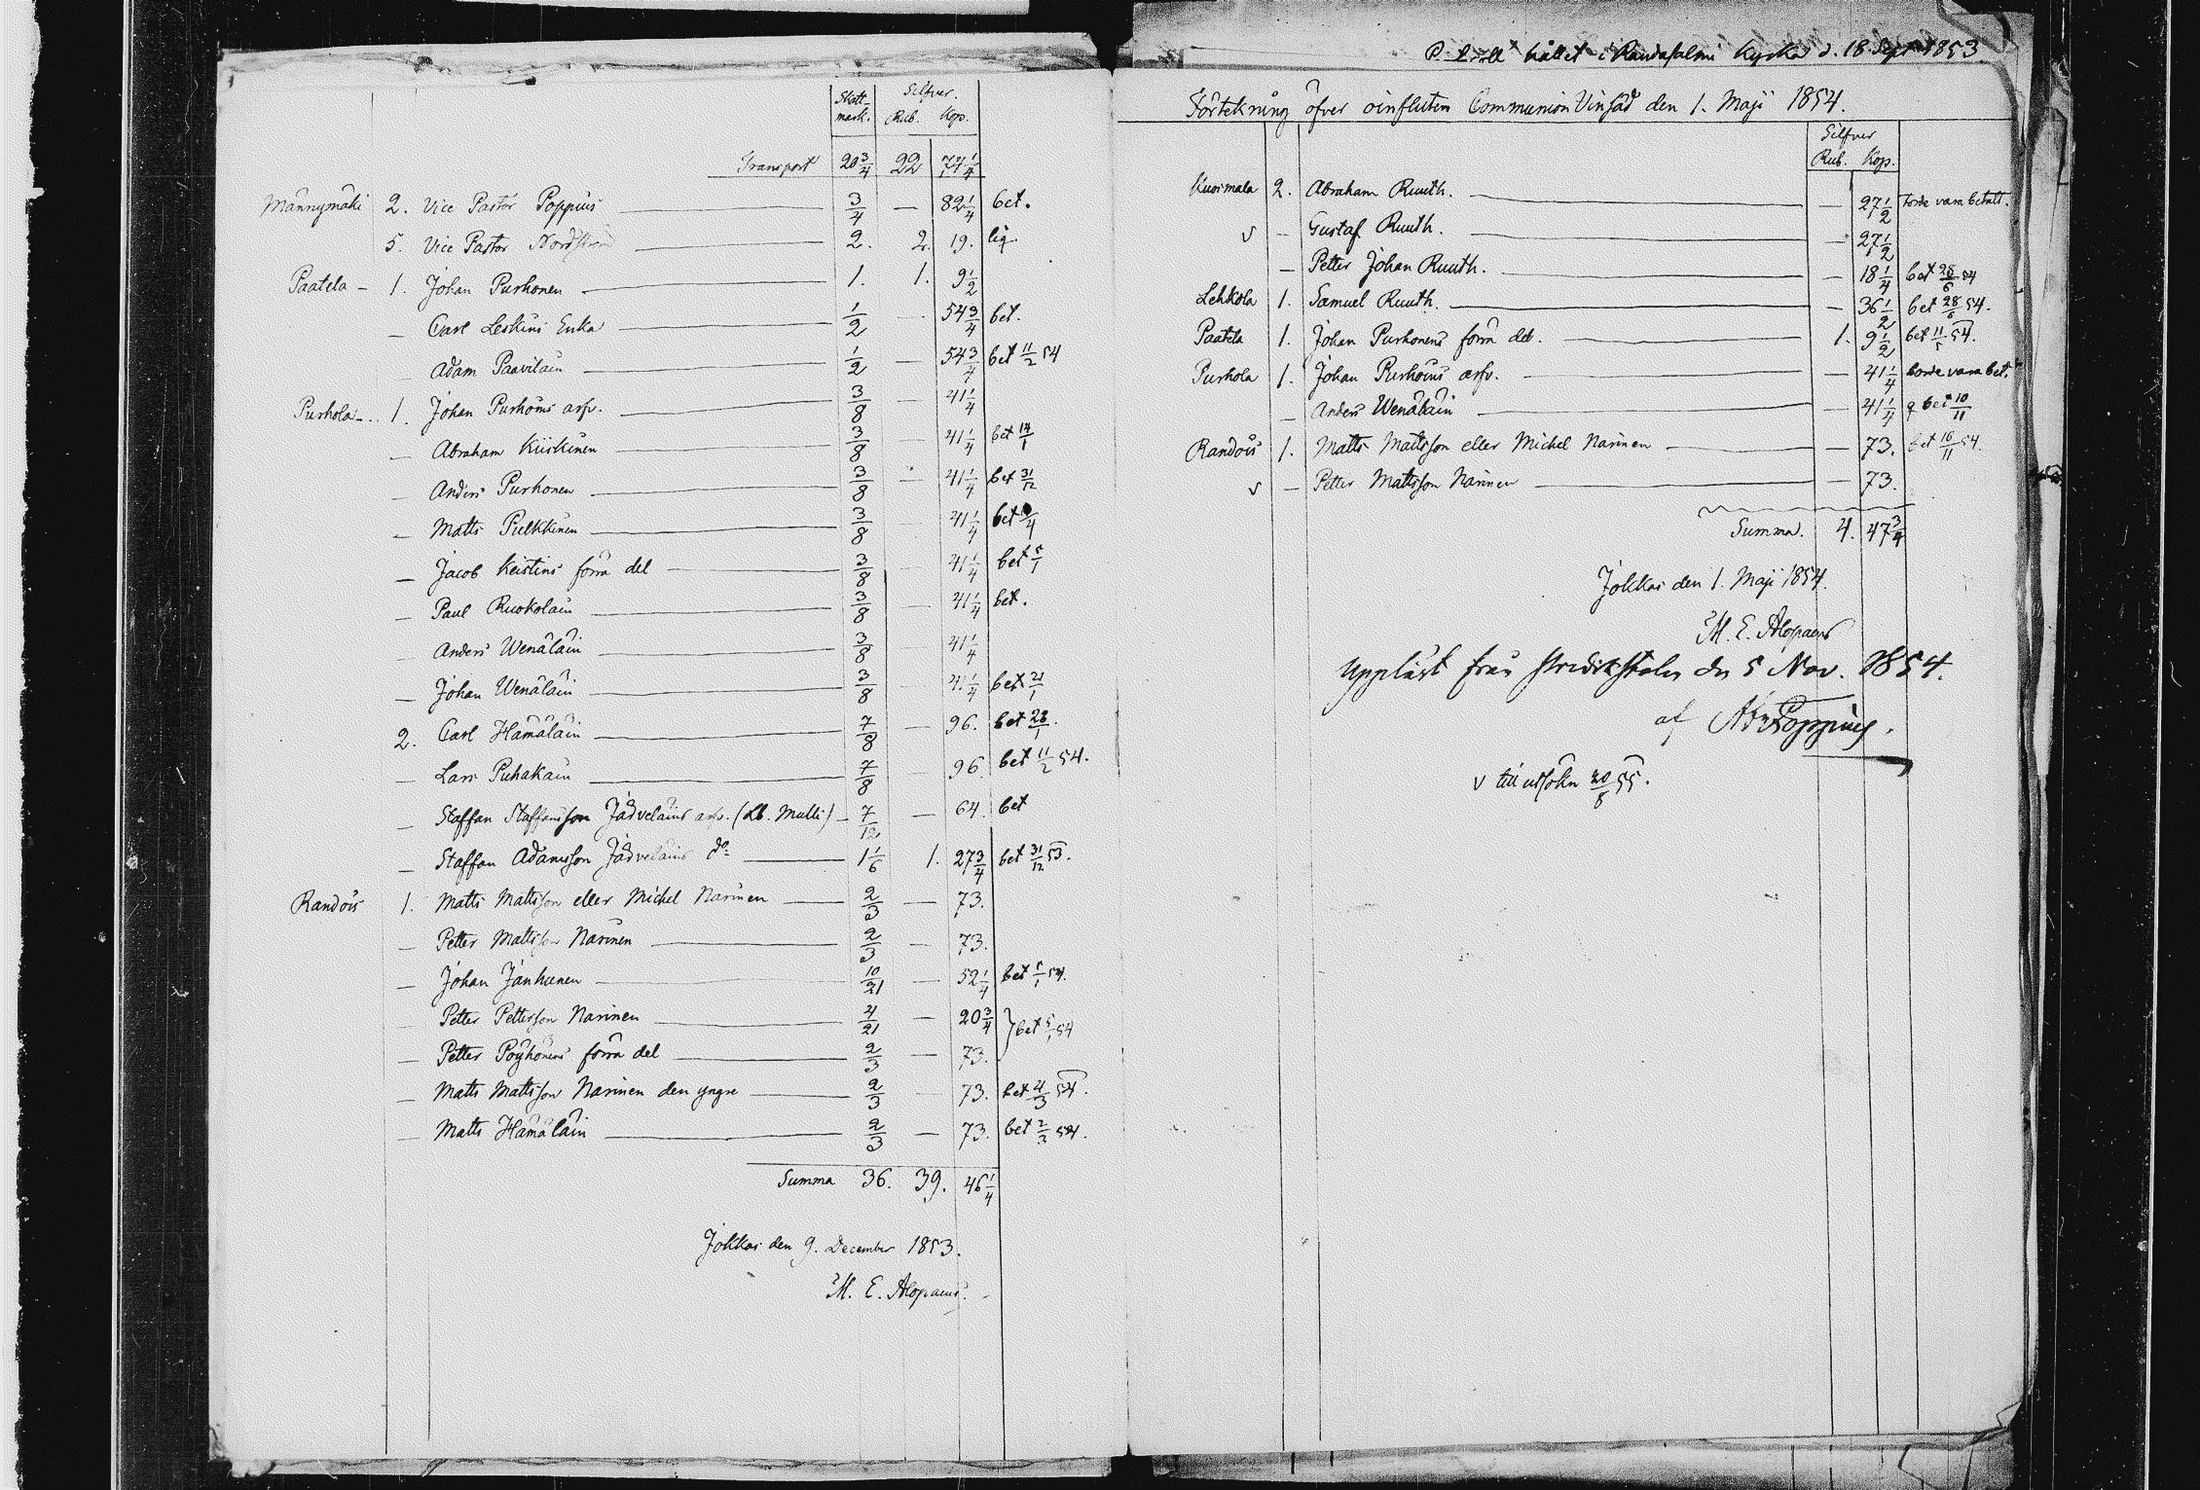 Skatt- Silfver.
mark. Rub. Kop.
Transport 20 3/4 22 74 1/4
Männynmäki 2. Vice Pastor Poppius 3/4 — 82 1/4 bet.
5. Vice Pastor Nordström 2. 2. 19. liq.
Paatela – 1. Johan Purhonen 1. 1. 9 1/2
— Carl Leskins Enka 1/2 — 54 3/4 bet.
— Adam Paavilain 1/2 — 54 3/4 bet 11/2 54
Purhola – 1. Johan Purhoins arfv. 3/8 — 41 1/4
— Abraham Kiiskinen 3/8 — 41 1/4 bet 14/1
— Anders Purhonen 3/8 — 41 1/4 bet 31/12
— Matts Pulkkinen 3/8 41 1/4 bet /4
— Jacob Keistins förra del 3/8 41 1/4 bet 5/1
— Paul Ruokolain 3/8 — 41 1/4 bet.
— Anders Wenäläin 3/8 41 1/4
— Johan Wenäläin 3/8 41 1/4 bet 21/1
2. Carl Hämäläin 7/8 — 96. bet 28/1.
— Lars Puhakain 7/8 — 96. bet 11/2 54.
— Staffan Staffansson Jädveläins arfv. (Lb. Multi) 7/12 — 64. bet
— Staffan Adamsson Jädveläins do 1 1/6 1. 27 3/4 bet 31/12 53.
Randois 1. Matts Mattsson eller Michel Narinen 2/3 — 73.
— Petter Mattsson Narinen 2/3 — 73.
— Johan Jänhunen 10/21 — 52 1/4 bet 5/1 54.
— Petter Pettersson Narinen 4/21 — 20 3/4 } bet 5/1 54
— Petter Pöyhönens förra del 2/3 — 73.
— Matts Mattsson Narinen den yngre 2/3 — 73. bet 4/3 54.
— Matts Hämäläin 2/3 — 73. bet 2/3 54.
Summa 36. 39. 46 1/4
Jokkas den 9. December 1853.
M. E. Alopaeus.
hållet i Randasalmi Kyrka d. 18 Sept 1853
Förtekning öfver oinfluten Communion Vinsäd den 1. Maji 1854.
Silfver
Rub. Kop.
Kuosmala 2. Abraham Ruuth. — 27 1/2 torde vara betalt.
v — Gustaf Ruuth. — 27 1/2
— Petter Johan Ruuth. — 18 1/4 bet 28/6 54
Lehkola 1. Samuel Ruuth. — 36 1/2 bet 28/6 54.
Paatela 1. Johan Purhonens förra del. 1. 9 1/2 bet 11/5 54.
Purhola 1. Johan Purhoins arfv. — 41 1/4 torde vara bet.
— Anders Wenäläin — 41 1/4 bet 10/11
Randois 1. Matts Mattsson eller Michel Narinen — 73. bet 16/11 54.
v — Petter Mattsson Narinen — 73.
Summa. 4. 47 3/4
Jokkas den 1. Maji 1854.
M. E. Alopaeus
Uppläst från Predikstolen den 5 Nov. 1854.
af Poppius.
v till utsökn 20/8 55.